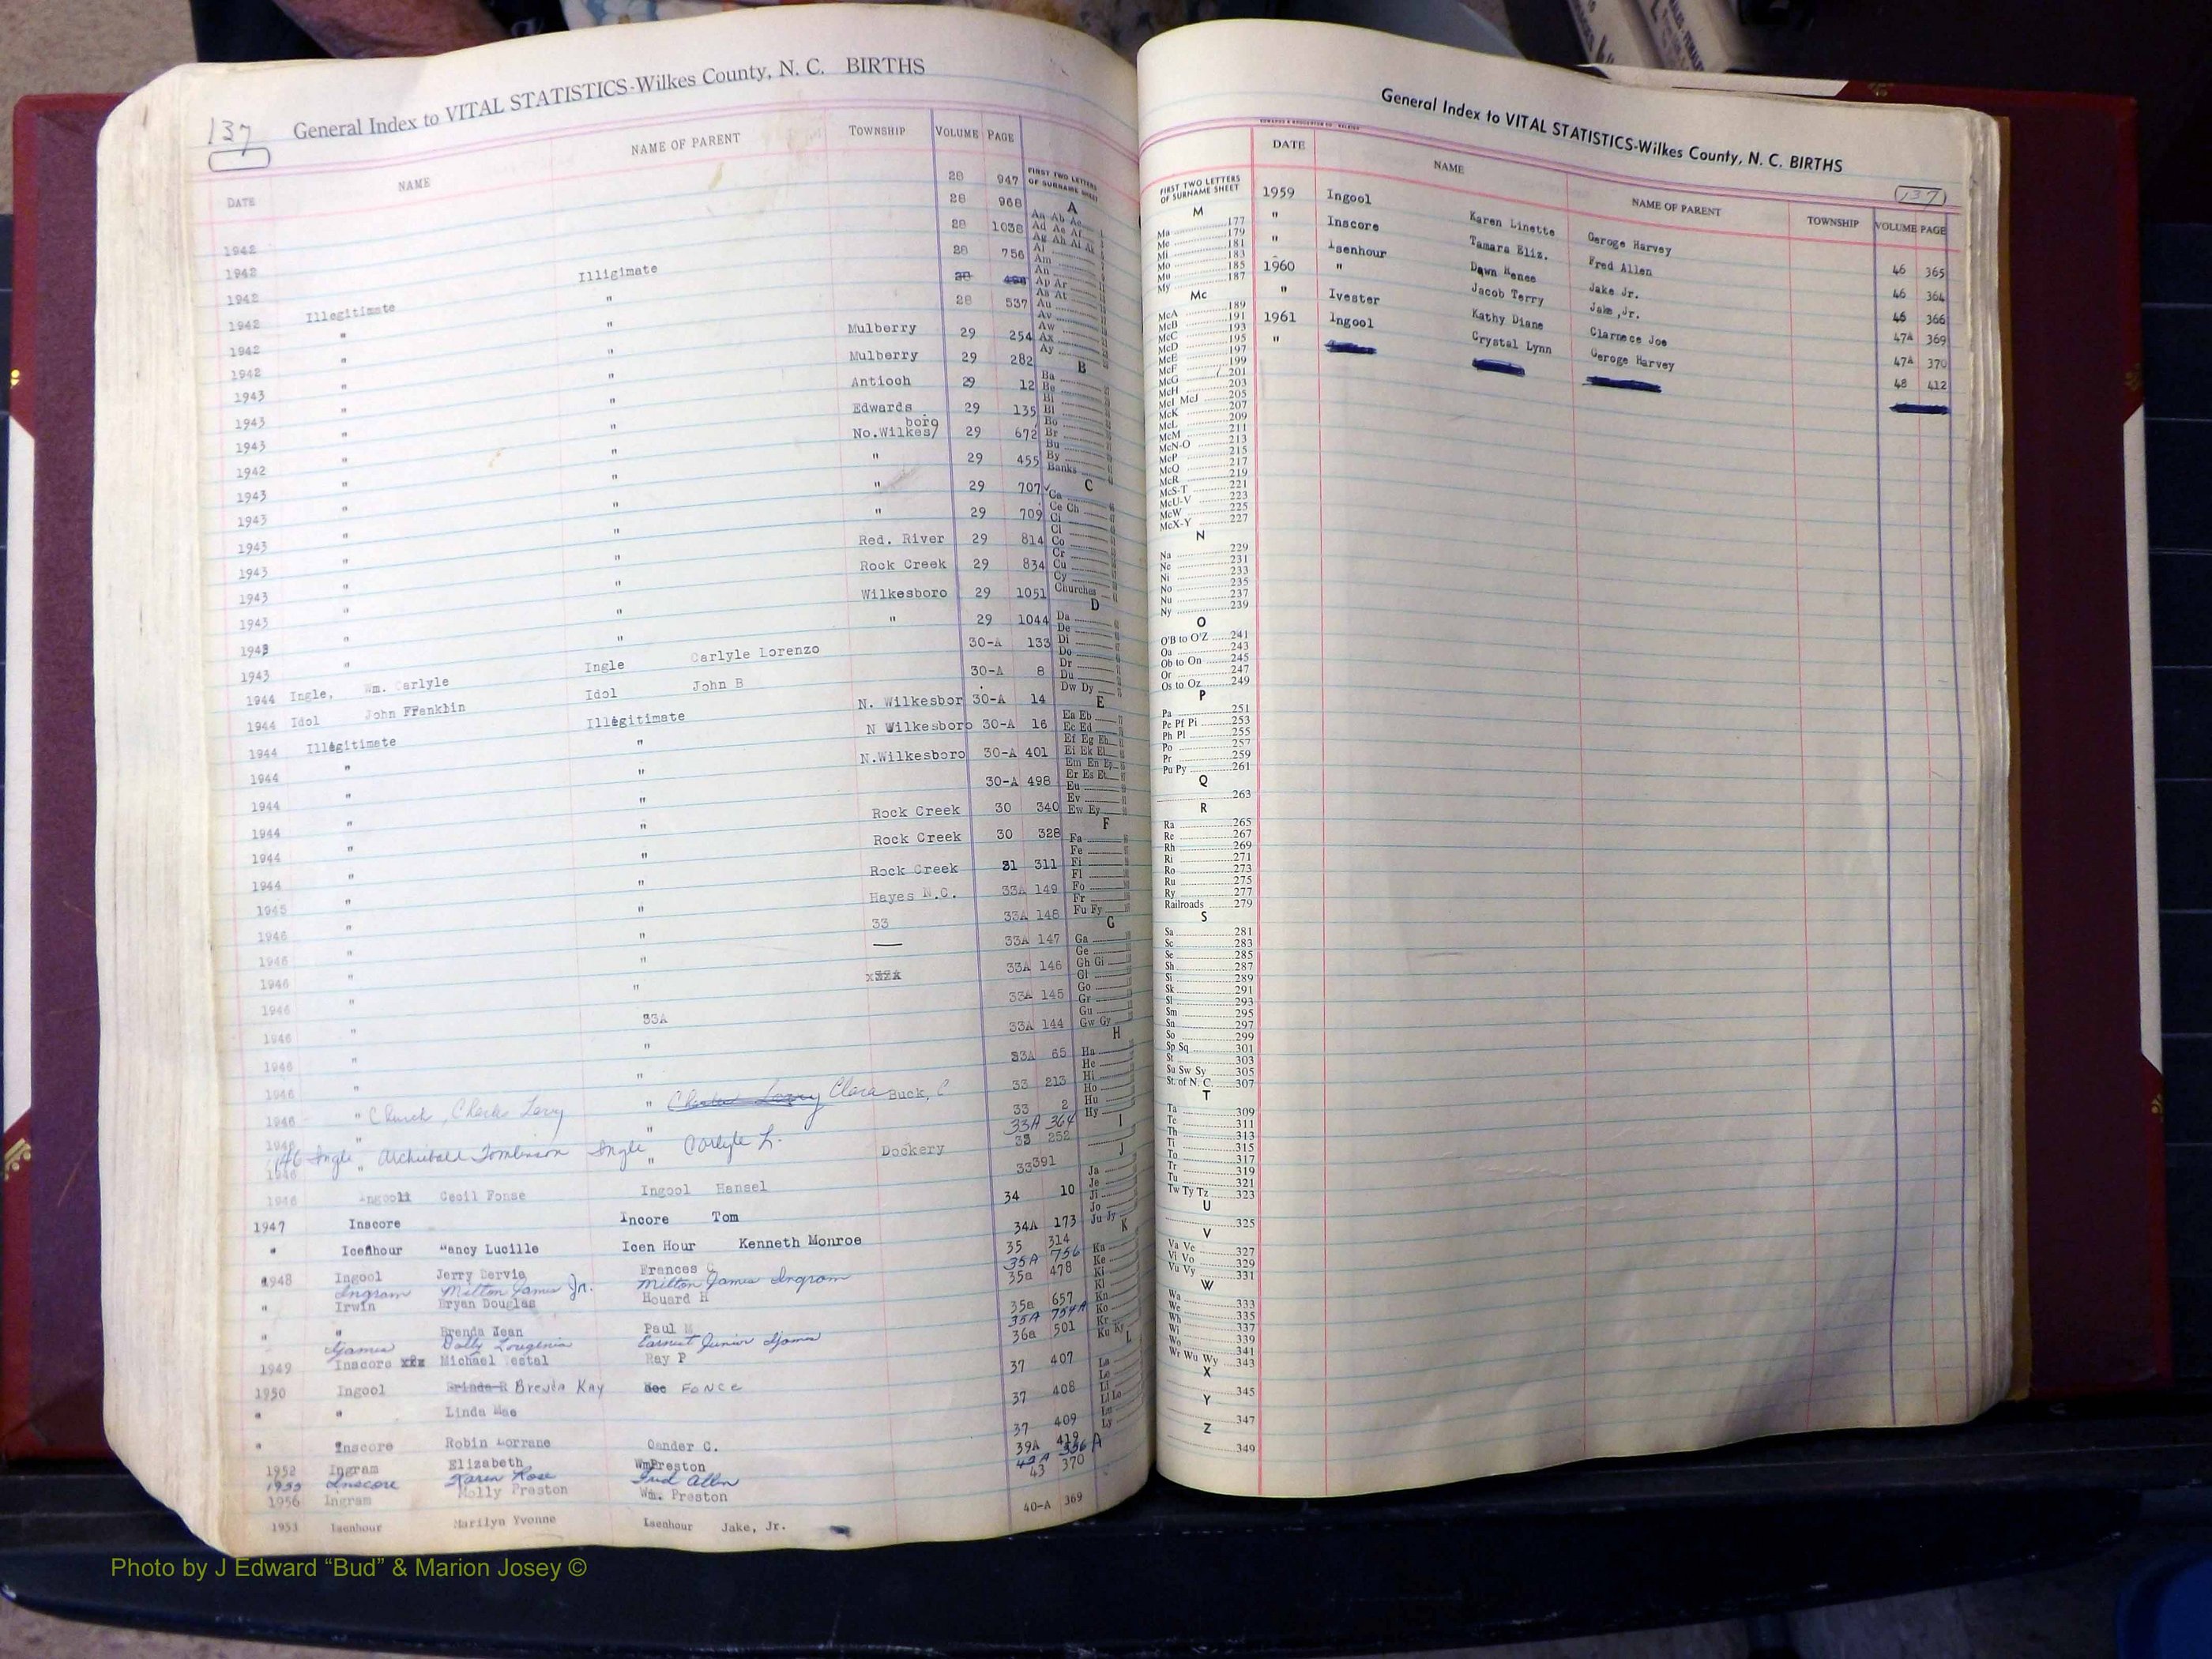 137
General Index to VITAL STATISTICS-Wilkes County, N. C. BIRTHS
DATE NAME NAME OF PARENT TOWNSHIP VOLUME PAGE
28 947
28 968
1942 28 1038
1942 Illigimate 28 756
1942 Illegitimate " 28 496
1942 " " 28 537
1942 " " Mulberry 29 254
1942 " " Mulberry 29 282
1943 " " Antioch 29 12
1943 " " Edwards 29 135
1943 " " No.Wilkes/boro 29 672
1942 " " " 29 455
1943 " " " 29 707
1943 " " " 29 709
1943 " " Red. River 29 814
1943 " " Rock Creek 29 834
1943 " " Wilkesboro 29 1051
1943 " " " 29 1044
1943 " " 30-A 133
1943 "
1944 Ingle, Wm. Carlyle Ingle Carlyle Lorenzo 30-A 8
1944 Idol John Franklin Idol John B N. Wilkesbor 30-A 14
1944 Illegitimate Illegitimate N Wilkesboro 30-A 16
1944 " " N.Wilkesboro 30-A 401
1944 " " 30-A 498
1944 " " Rock Creek 30 340
1944 " " Rock Creek 30 328
1944 " " Rock Creek 31 311
1945 " " Hayes N.C. 33A 149
1946 " " 33 33A 148
1946 " " 33A 147
1946 " " 33A 146
1946 " " 33A 145
1946 " 33A 33A 144
1946 " " 33A 65
1946 " " 33 213
1946 " Church, Charles Leroy " Clara Buck, C 33 2
33A 364
1946 " " 33 252
1946 Ingle Archibald Tomlinson Ingle Carlyle L.
1946 " " Dockery 33 391
1946 Ingool Cecil Fonse Ingool Hansel 34 10
1947 Inscore Incore Tom 34A 173
" Icenhour Nancy Lucille Icen Hour Kenneth Monroe 35 314
1948 Ingool Jerry Dervie Frances C 35A 756
Ingram Milton James Jr. Milton James Ingram 35a 478
" Irwin Bryan Douglas Houard H 35a 657
" " Brenda Jean Paul M 35A 754A
Ijames Dolly Lougenia Earnest Junior Ijames 36a 501
1949 Inscore xxx Michael Vestal Ray P 37 407
1950 Ingool Brinda R Brenda Kay Fonce 37 408
" " Linda Mae 37 409
" Inscore Robin Lorrane Cander C. 39A 419
1952 Ingram Elizabeth WmPreston
1955 Inscore Karen Rose Fred Allen
1956 Ingram Molly Preston Wm. Preston 43 370
1953 Isenhour Marilyn Yvonne Isenhour Jake, Jr. 40-A 369
FIRST TWO LETTERS
OF SURNAME SHEET
A
Aa Ab Ac
Ad Ae Af
Ag Ah Ai Ak
Al
Am
An
Ap Ar
As At
Au
Av
Aw
Ax
Ay
B
Ba
Be
Bi
Bl
Bo
Br
Bu
By
Banks
C
Ca
Ce Ch
Ci
Cl
Co
Cr
Cu
Cy
Churches
D
Da
De
Di
Do
Dr
Du
Dw Dy
E
Ea Eb
Ec Ed
Ef Eg Eh
Ei Ek El
Em En Ep
Er Es Et
Eu
Ev
Ew Ey
F
Fa
Fe
Fi
Fl
Fo
Fr
Fu Fy
G
Ga
Ge
Gh Gi
Gl
Go
Gr
Gu
Gw Gy
H
Ha
He
Hi
Ho
Hu
Hy
I
J
Ja
Je
Ji
Jo
Ju Jy
K
Ka
Ke
Ki
Kl
Kn
Ko
Kr
Ku Ky
L
La
Le
Li
Ll Lo
Lu
Ly
General Index to VITAL STATISTICS-Wilkes County, N. C. BIRTHS
137
DATE NAME NAME OF PARENT TOWNSHIP VOLUME PAGE
1959 Ingool Karen Linette Geroge Harvey 46 365
" Inscore Tamara Eliz. Fred Allen 46 364
" Isenhour Dawn Renee Jake Jr. 46 366
1960 " Jacob Terry Jake,Jr. 47A 369
" Ivester Kathy Diane Clarnece Joe 47A 370
1961 Ingool Crystal Lynn Geroge Harvey 48 412
"
FIRST TWO LETTERS
OF SURNAME SHEET
M
Ma 177
Me 179
Mi 181
Mo 183
Mu 185
My 187
Mc
McA 189
McB 191
McC 193
McD 195
McE 197
McF 199
McG 201
McH 203
McI McJ 205
McK 207
McL 209
McM 211
McN-O 213
McP 215
McQ 217
McR 219
McS-T 221
McU-V 223
McW 225
McX-Y 227
N
Na 229
Ne 231
Ni 233
No 235
Nu 237
Ny 239
O
O'B to O'Z 241
Oa 243
Ob to On 245
Or 247
Os to Oz 249
P
Pa 251
Pe Pf Pi 253
Ph Pl 255
Po 257
Pr 259
Pu Py 261
Q
263
R
Ra 265
Re 267
Rh 269
Ri 271
Ro 273
Ru 275
Ry 277
Railroads 279
S
Sa 281
Sc 283
Se 285
Sh 287
Si 289
Sk 291
Sl 293
Sm 295
Sn 297
So 299
Sp Sq 301
St 303
Su Sw Sy 305
St. of N. C. 307
T
Ta 309
Te 311
Th 313
Ti 315
To 317
Tr 319
Tu 321
Tw Ty Tz 323
U
325
V
Va Ve 327
Vi Vo 329
Vu Vy 331
W
Wa 333
We 335
Wh 337
Wi 339
Wo 341
Wr Wu Wy 343
X
345
Y
347
Z
349
Photo by J Edward “Bud” & Marion Josey ©